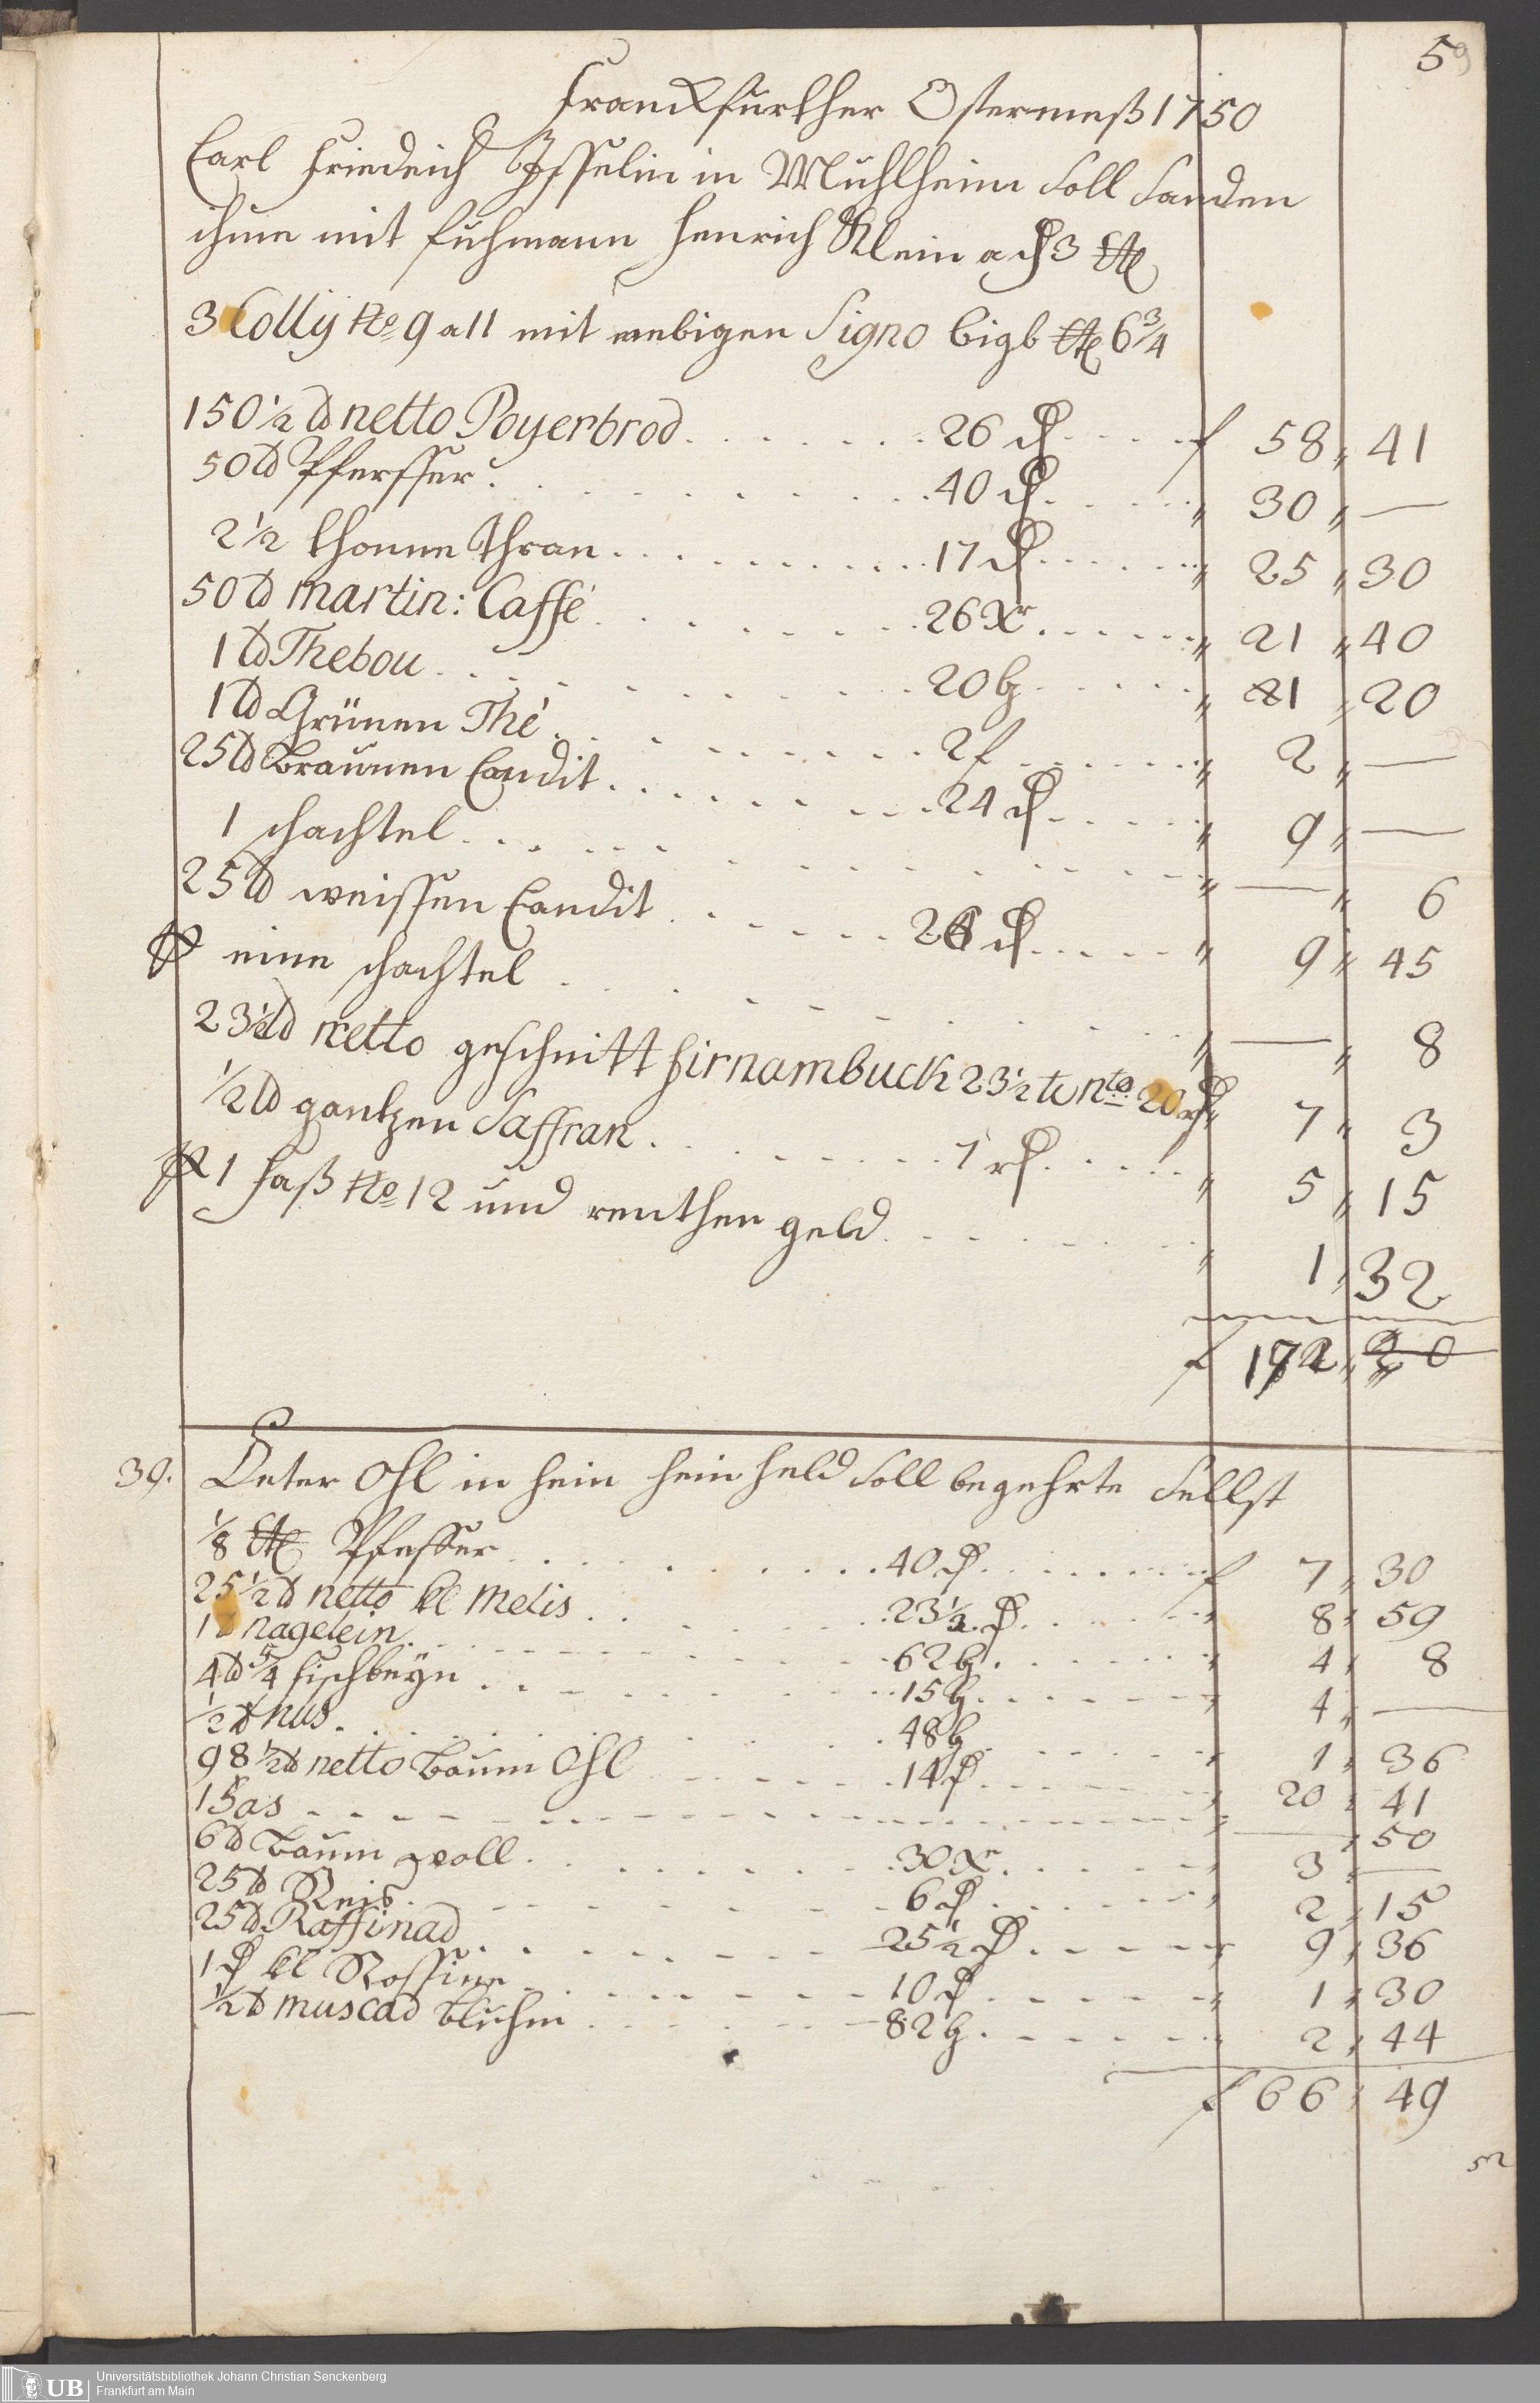 59
Franckfurther Ostermeß 1750
Carl Friederich Ysselin in Mühlheim soll sanden
ihme mit fuhmann Henrich Klein a rh 3 Ct
3 Colly No 9 a 11 mit nebigen Signo Ctt 6 3/4
150 1/2 ℔ netto Poyerbrod 26 rh f 58 41
50 ℔ Pfeffer 40 rh 30 —
2 1/2 thonne Thran 17 rh 25 30
50 ℔ martin: Caffé 26 Xr 21 40
1 ℔ Thebou 20 b 1 20
1 ℔ Grünen Thé 2 f 2 —
25 ℔ Braunen Candit 24 rh 9 —
1 schachtel — 6
25 ℔ weissen Candit 26 rh 9 45
eine schachtel — 8
23 1/2 ℔ netto geschnitt firnambuck 23 1/2 ℔ nto 20 rh 7 3
1/2 ℔ gantzen Saffran 7 rh 5 15
1 faß No 12 und reuther geld 1 32
f 172 20
39. Peter Ohl in hein soll begehrte selbst
1/8 Ct Pfeffer 40 rh f 7 30
25 1/2 ℔ netto kl Melis 23 1/2 rh 8 59
1 ℔ nagelein 62 b 4 8
4 ℔ 5/4 fischbeyn 15 b 4 —
1/2 ℔ nus 48 b 1 36
98 1/2 ℔ netto Baum Ohl 14 rh 20 41
1 Fas — 50
6 ℔ Baum woll 30 Xr 3 —
25 ℔ Reis 6 rh 2 15
25 ℔ Raffinad 25 1/2 rh 9 36
1 rh kl Rossine 10 rh 1 30
1/2 ℔ muscad bluhm 82 b 2 44
f 66 49
UB
Universitätsbibliothek Johann Christian Senckenberg
Frankfurt am Main